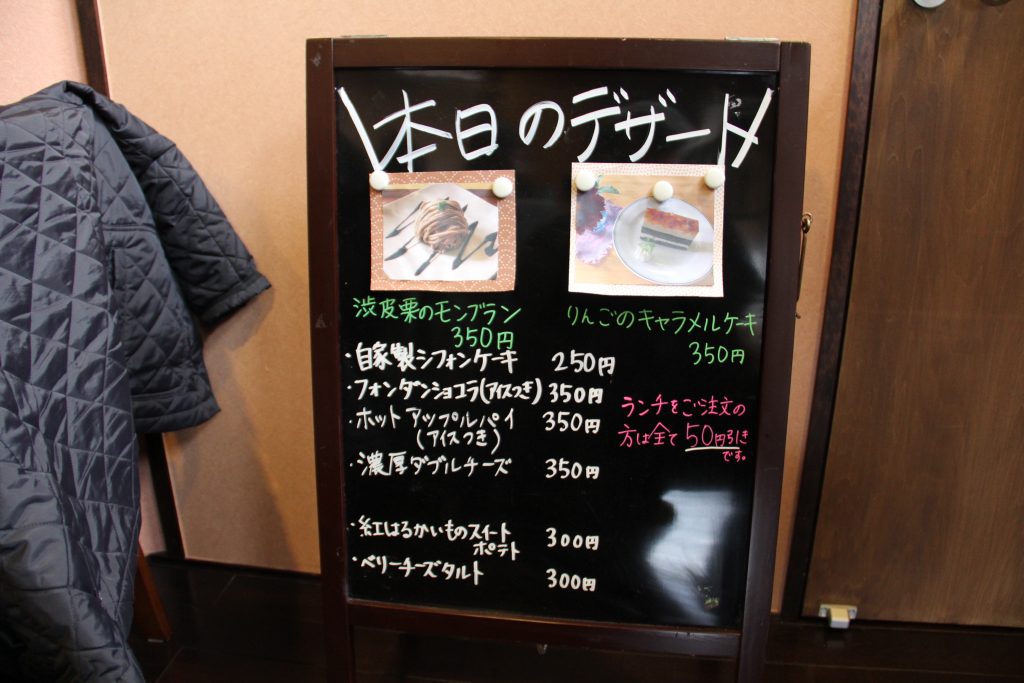 本日のデザート
渋皮栗のモンブラン
350円
りんごのキャラメルケーキ
350円
・自家製シフォンケーキ 250円
・フォンダンショコラ(アイスつき) 350円
・ホットアップルパイ 350円
(アイスつき)
・濃厚ダブルチーズ 350円
・紅はるかいものスイート 300円
ポテト
・ベリーチーズタルト 300円
ランチをご注文の
方は全て50円引き
です。